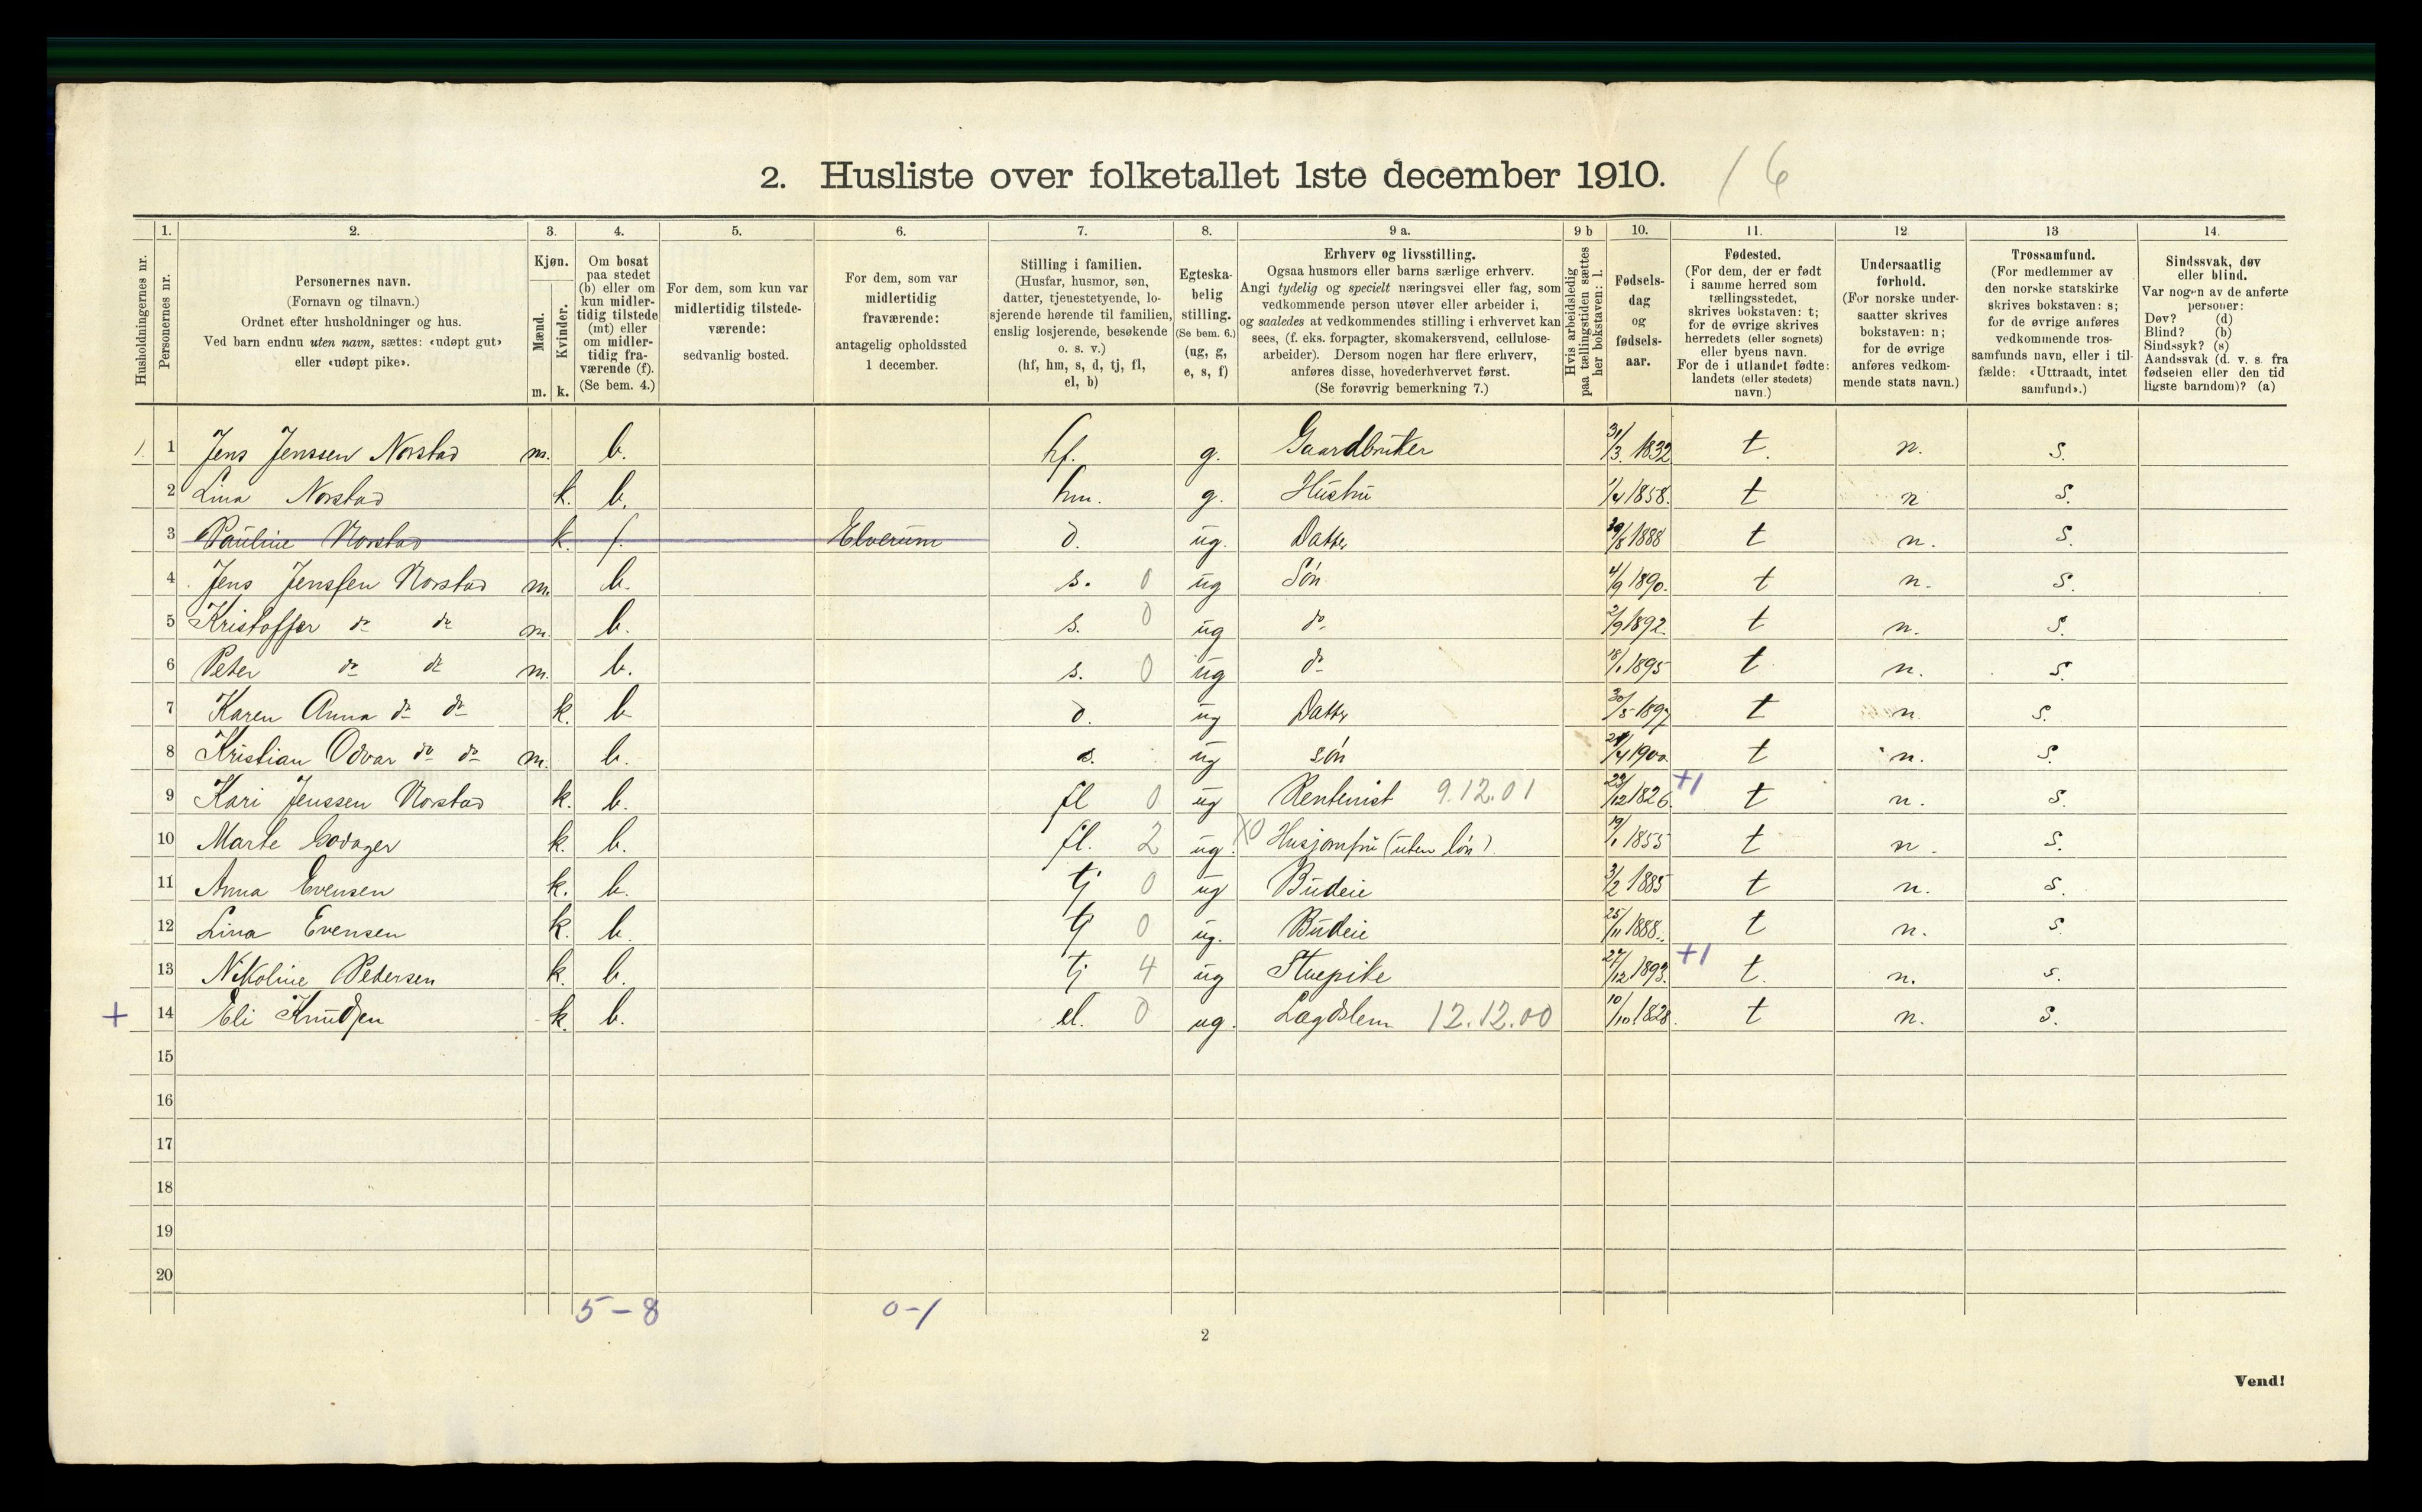 2. Husliste over folketallet 1ste december 1910. 16
1. 2. 3. 4. 5. 6. 7. 8. 9 a. 9 b 10. 11. 12 13 14.
Husholdningernes nr.
Personernes nr.
Personernes navn.
(Fornavn og tilnavn.)
Ordnet efter husholdninger og hus.
Ved barn endnu uten navn, sættes: «udøpt gut»
eller «udøpt pike».
Kjøn.
Mænd.
Kvinder.
m. k.
Om bosat
paa stedet
(b) eller om
kun midler-
tidig tilstede
(mt) eller
om midler-
tidig fra-
værende (f).
(Se bem. 4.)
For dem, som kun var
midlertidig tilstede-
værende:
sedvanlig bosted.
For dem, som var
midlertidig
fraværende:
antagelig opholdssted
1 december.
Stilling i familien.
(Husfar, husmor, søn,
datter, tjenestetyende, lo-
sjerende hørende til familien,
enslig losjerende, besøkende
o. s. v.)
(hf, hm, s, d, tj, fl,
el, b)
Egteska-
belig
stilling.
(Se bem. 6.)
(ug, g,
e, s, f)
Erhverv og livsstilling.
Ogsaa husmors eller barns særlige erhverv.
Angi tydelig og specielt næringsvei eller fag, som
vedkommende person utøver eller arbeider i,
og saaledes at vedkommendes stilling i erhvervet kan
sees, (f. eks. forpagter, skomakersvend, cellulose-
arbeider). Dersom nogen har flere erhverv,
anføres disse, hovederhvervet først.
(Se forøvrig bemerkning 7.)
Hvis arbeidsledig
paa tællingstiden sættes
her bokstaven: l.
Fødsels-
dag
og
fødsels-
aar.
Fødested.
(For dem, der er født
i samme herred som
tællingsstedet,
skrives bokstaven: t;
for de øvrige skrives
herredets (eller sognets)
eller byens navn.
For de i utlandet fødte:
landets (eller stedets)
navn.)
Undersaatlig
forhold.
(For norske under-
saatter skrives
bokstaven: n;
for de øvrige
anføres vedkom-
mende stats navn.)
Trossamfund.
(For medlemmer av
den norske statskirke
skrives bokstaven: s;
for de øvrige anføres
vedkommende tros-
samfunds navn, eller i til-
fælde: «Uttraadt, intet
samfund».)
Sindssvak, døv
eller blind.
Var nogen av de anførte
personer:
Døv? (d)
Blind? (b)
Sindssyk? (s)
Aandssvak (d. v. s. fra
fødselen eller den tid
ligste barndom)? (a)
1. 1 Jens Jenssen Norstad m. b. hf. g. Gaardbruker 31/3 1832 t. n. s.
2 Lina Norstad k. b. hm. g. Hustru 1/4 1858. t n s.
3 Pauline Norstad k. f. Elverum d. ug. Datter 1888 t n. s.
4 Jens Jenssen Norstad m. b. s. 0 ug Søn 4/9 1890. t n. s.
5 Kristoffer do do m. b. s. 0 ug do 2/9 1892. t n. s.
6 Peter do do m. b. s. 0 ug do 18/1 1895 t n. s.
7 Karen Anna do do k. b d. ug Datter 30/5 1897 t n. s.
8 Kristian Odvar do do m. b. s. ug søn /4 1900 t n. s.
9 Kari Jenssen Norstad k. b. fl 0 ug Rentenist 9.12.01 23/12 1826. +1 t n. s.
10 Marte Godager k. b. fl. 2 ug. X0 Husjomfru (uten løn). 19/1 1855 t n. s.
11 Anna Evensen k. b. tj 0 ug Budeie 3/2 1885 t n. s.
12 Lina Evensen k. b. tj 0 ug. Budeie 25/11 1888. t n. s.
13 Nikoline Pedersen k. b. tj 4 ug Stuepike 27/12 1893. +1 t. n. s.
+ 14 Eli Knudsen k. b. el. 0 ug. Lægdslem 12.12.00 10/10 1828. t n. s.
15
16
17
18
19
20
5-8 0-1
2
Vend!